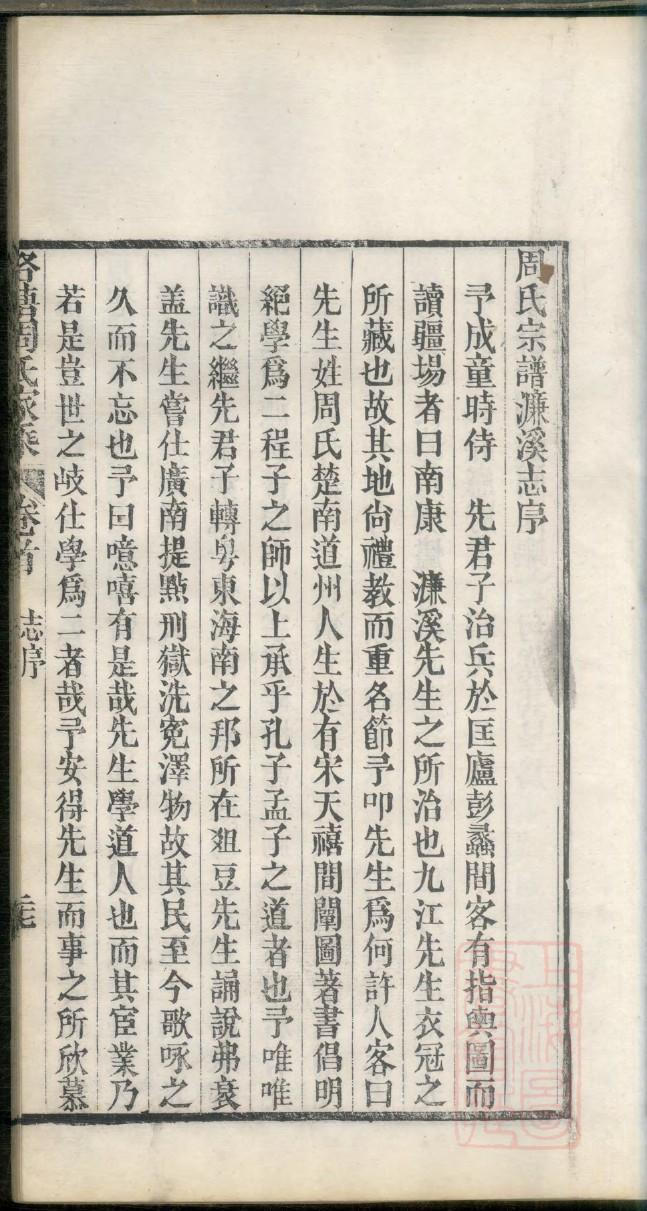 周氏宗譜濂溪志序
予成童時侍　先君子治兵於匡廬彭蠡間客有指輿圖而
讀疆場者曰南康　濂溪先生之所治也九江先生衣冠之
所藏也故其地尙禮教而重名節予叩先生爲何許人客曰
先生姓周氏楚南道州人生於有宋天禧間闡圖著書倡明
絕學爲二程子之師以上承乎孔子孟子之道者也予唯唯
識之繼先君子轉粤東海南之邦所在俎豆先生誦說弗衰
盖先生嘗仕廣南提點刑獄洗寃澤物故其民至今歌咏之
久而不忘也予曰噫嘻有是哉先生學道人也而其宦業乃
若是豈世之岐仕學爲二者哉予安得先生而事之所欣慕
周氏家乘　卷首　志序